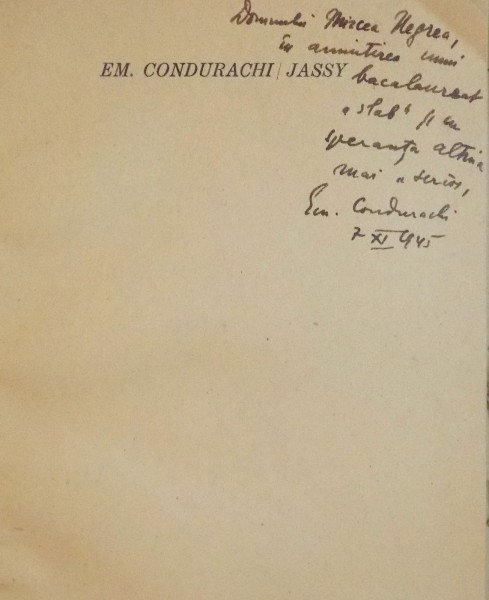 Domnului Mircea Negrea,
în amintirea unui
EM. CONDURACHI / JASSY
bacalaureat
„slab“ și cu
speranța altuia
mai „serios,
Em. Condurachi
7 XI 1945